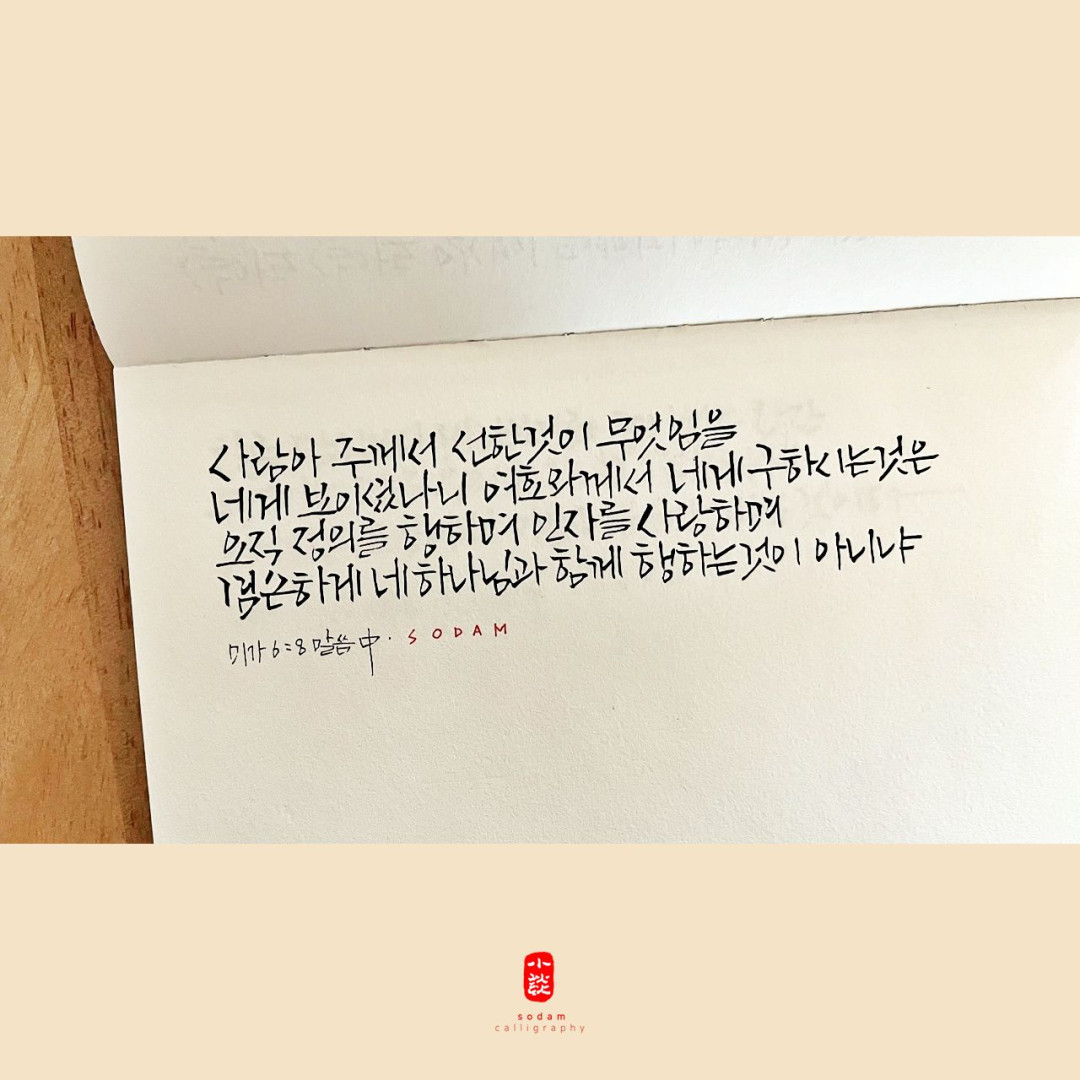 사람아 주께서 선한것이 무엇임을
네게 보이셨나니 여호와께서 네게 구하시는것은
오직 정의를 행하며 인자를 사랑하며
겸손하게 네 하나님과 함께 행하는것이 아니냐
미가 6:8 말씀 中 · SODAM
小談
sodam
calligraphy